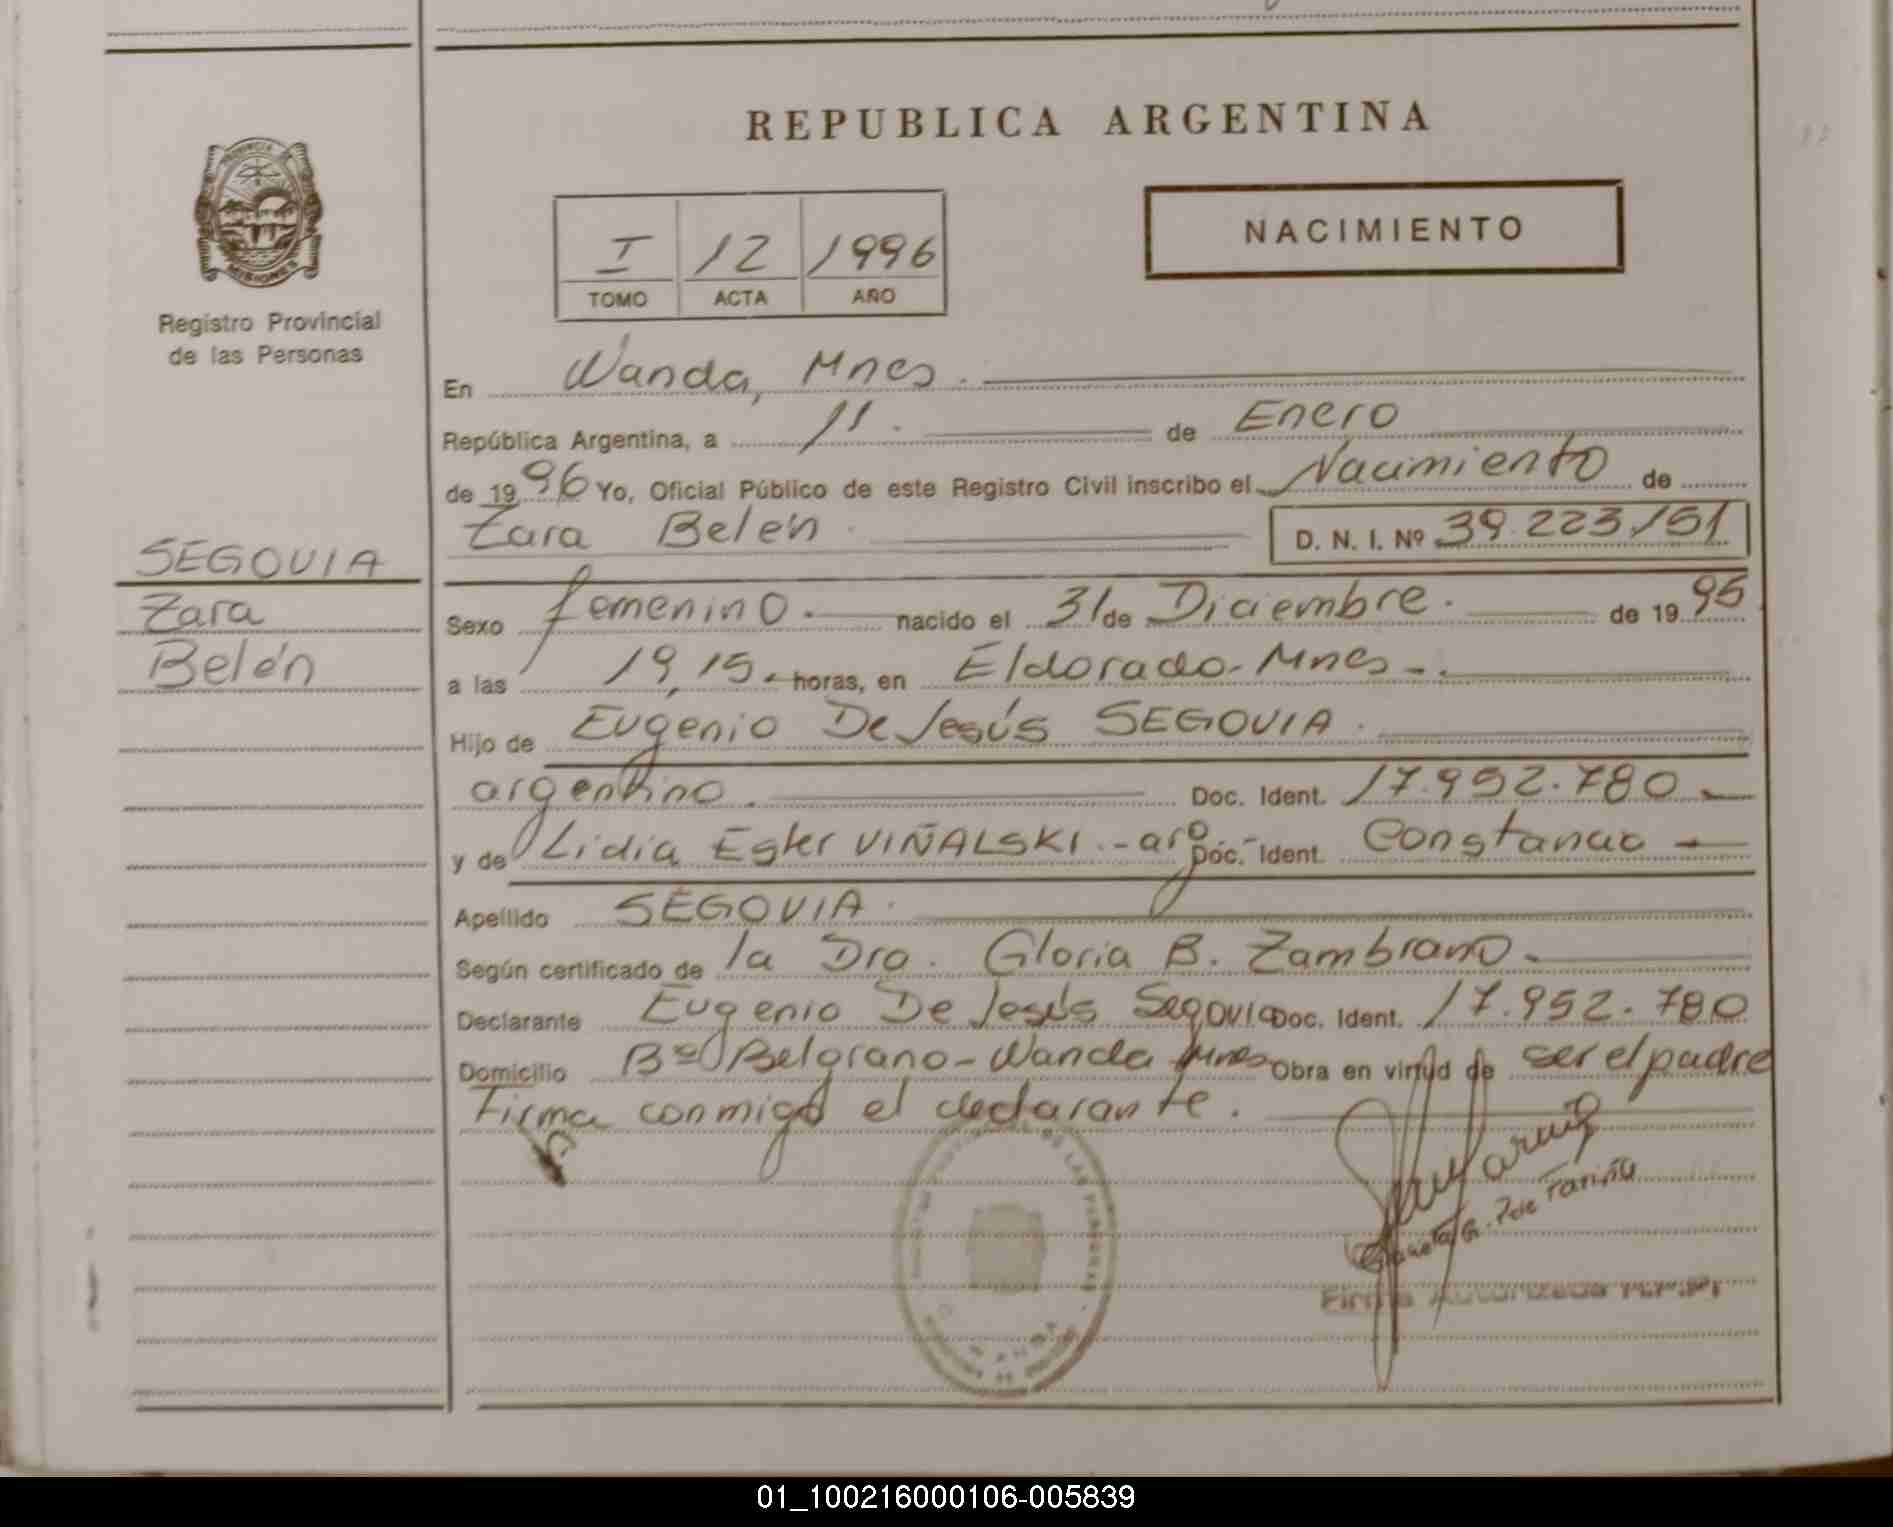 REPUBLICA ARGENTINA
PROVINCIA DE
MISIONES
Registro Provincial
de las Personas
I 12 1996
TOMO ACTA AÑO
NACIMIENTO
En Wanda, Mnes.
República Argentina, a 11. de Enero
de 1996 Yo, Oficial Público de este Registro Civil inscribo el Nacimiento de
Zara Belén D. N. I. Nº 39.223151
SEGOVIA
Zara
Belén
Sexo femenino.- nacido el 31 de Diciembre. de 1995
a las 19,15.- horas, en Eldorado- Mnes-.
Hijo de Eugenio De Jesús SEGOVIA.
argentino. Doc. Ident. 17.952.780
y de Lidia Ester VIÑALSKI.- arg Doc. Ident. Constancia -
Apellido SEGOVIA.
Según certificado de la Dra. Gloria B. Zambrano.
Declarante Eugenio De Jesús Segovia Doc. Ident. 17.952.780
Domicilio Bº Belgrano - Wanda Mnes Obra en virtud de ser el padre
Firma conmigo el declarante.
DE LAS PERSONAS
WANDA
de Fariña
Firma Autorizada
01_100216000106-005839